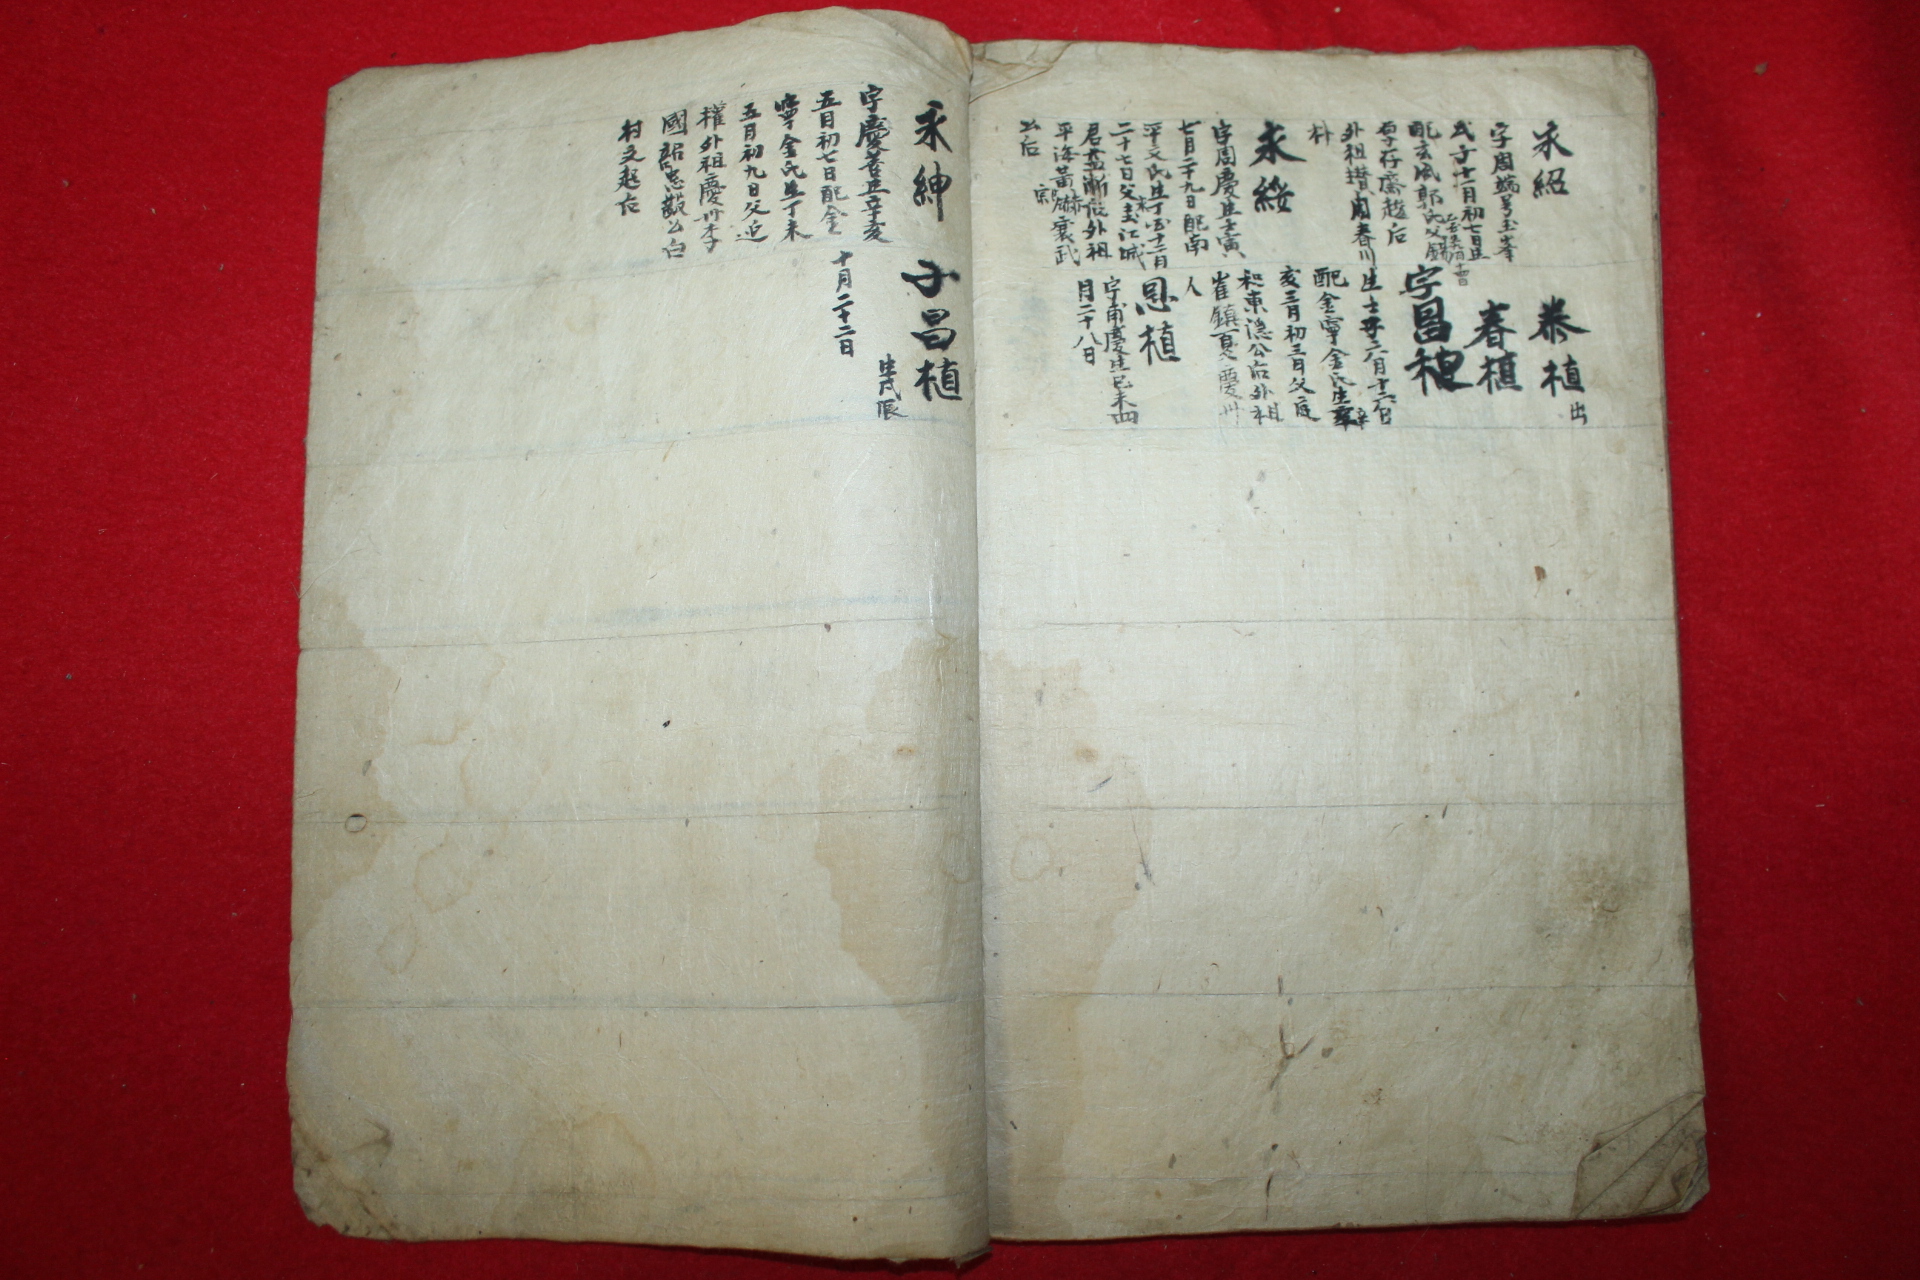 永紹
字周端号玉峯
戊子十一月初七日生
配玄風郭氏父錫
존子存齋趙后
外祖攢周春川
朴
永綏
字周慶生壬寅
七月二十九日配南
平文氏生丁酉十二月
二十七日父玉江城
君益漸后外祖
平海黃
公后
泰植 出
春植
字昌植
生壬子六月十六日
配金寧金氏生辛
亥三月初三日父庭
和東隱公后外祖
崔鎭夏慶州
人
思植
字甫慶生己未四
月二十八日
永紳
字慶善生辛亥
五日初七日配金
寧金氏生丁未
五月初九日父迫
權外祖慶州李
國
村文起后
子昌植
生戊辰
十月二十二日